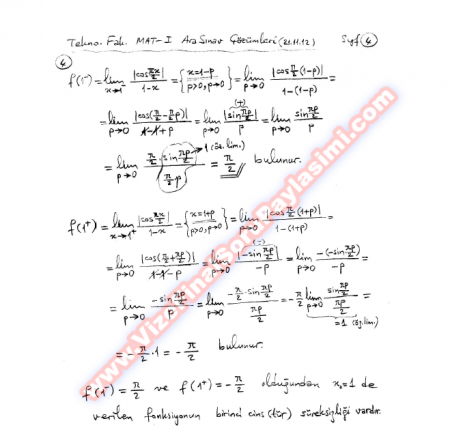 Tekno. Fak. MAT-I Ara Sınav Çözümleri (21.11.12) Syf 4
4
f(1⁻) = lim_{x→1⁻} |cos πx/2| / (1-x) = {x=1-p, p>0, p→0} = lim_{p→0} |cos π/2 (1-p)| / (1-(1-p)) =
= lim_{p→0} |cos(π/2 - π/2 p)| / (1-1+p) = lim_{p→0} |sin πp/2| (+) / p = lim_{p→0} sin πp/2 / p
= lim_{p→0} π/2 · sin πp/2 / (π/2 p) → 1 (öz. lim.) = π/2 bulunur.
f(1⁺) = lim_{x→1⁺} |cos πx/2| / (1-x) = {x=1+p, p>0, p→0} = lim_{p→0} |cos π/2 (1+p)| / (1-(1+p)) =
= lim_{p→0} |cos(π/2 + πp/2)| / (1-1-p) = lim_{p→0} |-sin πp/2| (-) / -p = lim_{p→0} -(-sin πp/2) / -p =
= lim_{p→0} -sin πp/2 / p = lim_{p→0} -π/2 · sin πp/2 / (πp/2) = -π/2 lim_{p→0} sin πp/2 / (πp/2) =
=1 (öz. lim.)
= -π/2 · 1 = -π/2 bulunur.
f(1⁻) = π/2 ve f(1⁺) = -π/2 olduğundan x₀=1 de
verilen fonksiyonun birinci cins (tür) süreksizliği vardır.
www.VizeFinalSoruPaylasimi.com